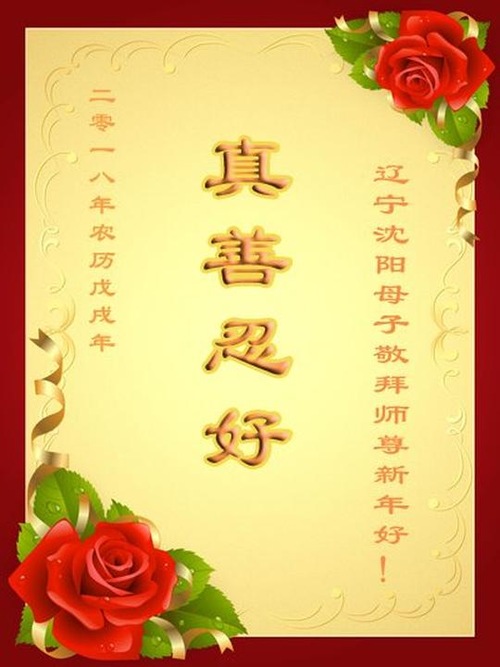 辽宁沈阳母子敬拜师尊新年好！
真善忍好
二零一八年农历戊戌年